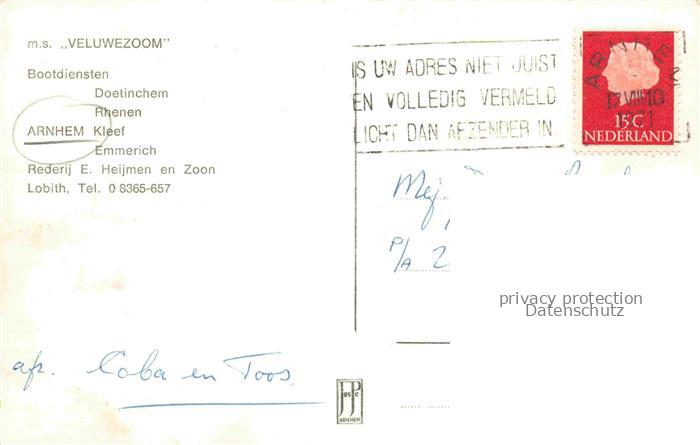 m.s. „VELUWEZOOM"
Bootdiensten
Doetinchem
Rhenen
ARNHEM Kleef
Emmerich
Rederij E. Heijmen en Zoon
Lobith, Tel. 0 8365-657
IS UW ADRES NIET JUIST
EN VOLLEDIG VERMELD
LICHT DAN AFZENDER IN
ARNHEM
17.VIII.10
15 C
NEDERLAND
Mej.
P/A 2
privacy protection
Datenschutz
afz. Coba en Toos.
JosPe
ARNHEM